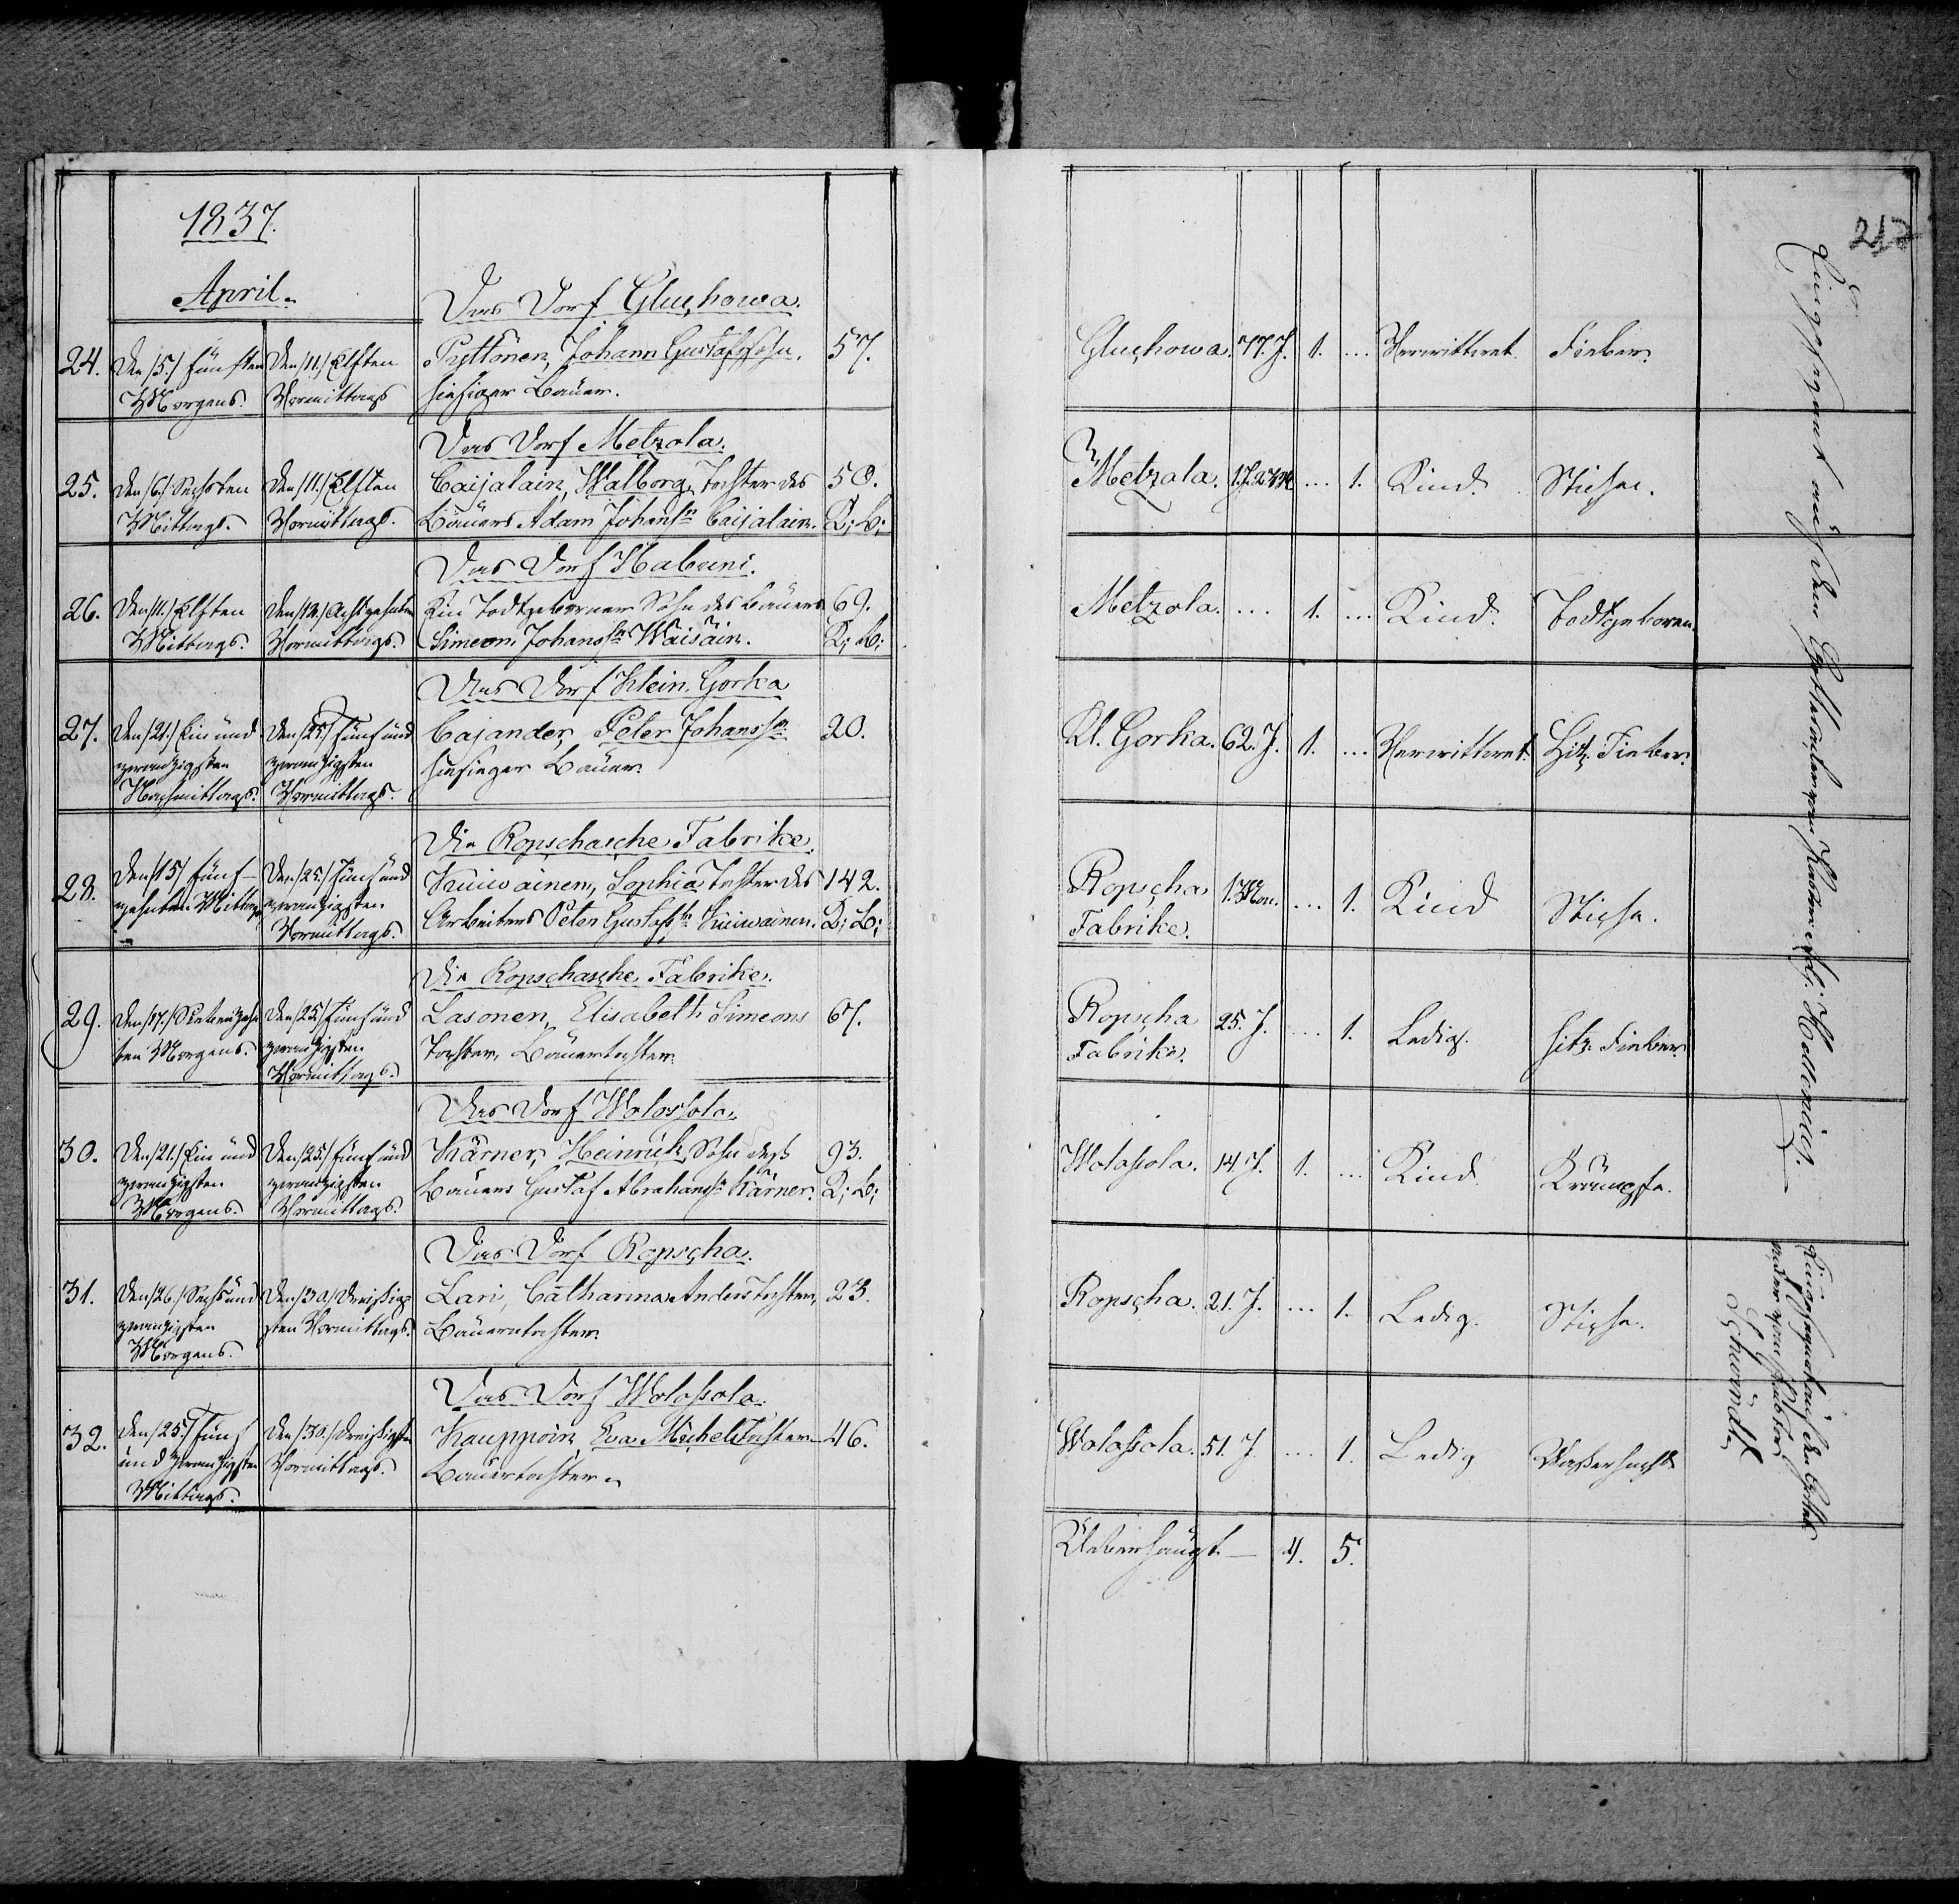 1837.
April.
Das Dorf Gluchowa.
24. Den /5./ fünften Den /11./ Elften Pyttönen, Johann Gustafssohn, 57.
Morgens. Vormittags hiesiger Bauer.
Das Dorf Metzola.
25. Den /6./ Sechsten Den /11./ Elften Caijalain, Walborg, Tochter des 50.
Mittags. Vormittags. Bauers Adam Johanssn Caijalain. K; B;
Das Dorf Habuni.
26. Den /11./ Elften Den /18./ Achtzehnten Ein Todtgeborner Sohn des Bauers 69.
Mittags. Vormittags. Simeon Johanssn Waisäin. K; B;
Das Dorf Klein Gorka
27. Den /21./ Ein und Den /25./ fünf und Cajander, Peter Johanssn 20.
zwanzigsten zwanzigsten hiesieger Bauer.
Nachmittags. Vormittags.
Die Ropschasche Fabrike.
28. Den /15/ fünf- Den /25./ fünf und Kuiwainen, Sophia Tochter des 142.
zehnten Mittags zwanzigsten Arbeiters Peter Gustafssn Kuiwainen. K; B;
Vormittags.
Die Ropschasche Fabrike.
29. Den /17./ Siebenzehn Den /25/ fünf und Lasonen, Elisabeth Simeons 67.
ten Morgens. zwanzigsten Tochter, Bauertochter.
Vormittags.
Das Dorf Wolossola.
30. Den /21./ Ein und Den /25./ fünf und Kärner, Heinrich, Sohn des 93.
zwanzigsten zwanzigsten Bauers Gustaf Abrahamssn Kärner. K; B;
Morgens. Vormittags.
Das Dorf Ropscha.
31. Den /26./ Sechs und Den /30./ Dreißig- Lari, Catharina Anders Tochter, 23.
zwanzigsten sten Vormittags. Bauerntochter.
Morgens.
Das Dorf Wolossola.
32. Den /25./ fünf Den /30./ Dreißigsten Kauppoin, Eva Michelstochter 46.
und zwanzigsten Vormittags. Bauertochter.
Mittags.
217
Gluchowa. 77. J. 1. ... Verwittwet. Fieber.
Metzola. 1. J. 2 M ... 1. Kind. Stiche.
Metzola. ... 1. ... Kind. Todtgeboren.
Kl. Gorka. 62. J. 1. ... Verwittwet. Hitz. Fieber.
Ropscha 1. Mon. ... 1. Kind Stiche.
Fabrike.
Ropscha 25. J. ... 1. Ledig. hitz. Fieber.
Fabrike.
Wolossola. 14. J. 1. ... Kind. Krämpfe.
Ropscha. 21. J. ... 1. Ledig. Stiche.
Wolossola. 51. J. ... 1. Ledig Wassersucht
Ueberhaupt — 4. 5.
Eingesegnet auf dem Gottesacker vom Küster
Eingesegnet auf dem Gottes
acker vom Pastor
Schwindt